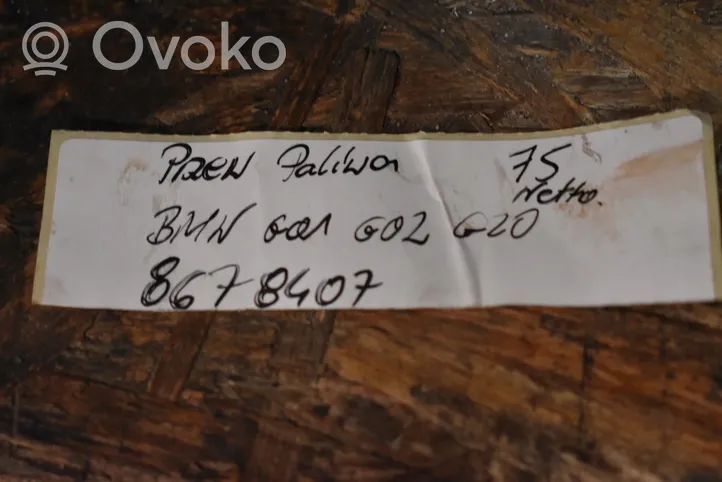 Ovoko
Przew Paliwa 75
Netto.
BMW G01 G02 G20
8678407